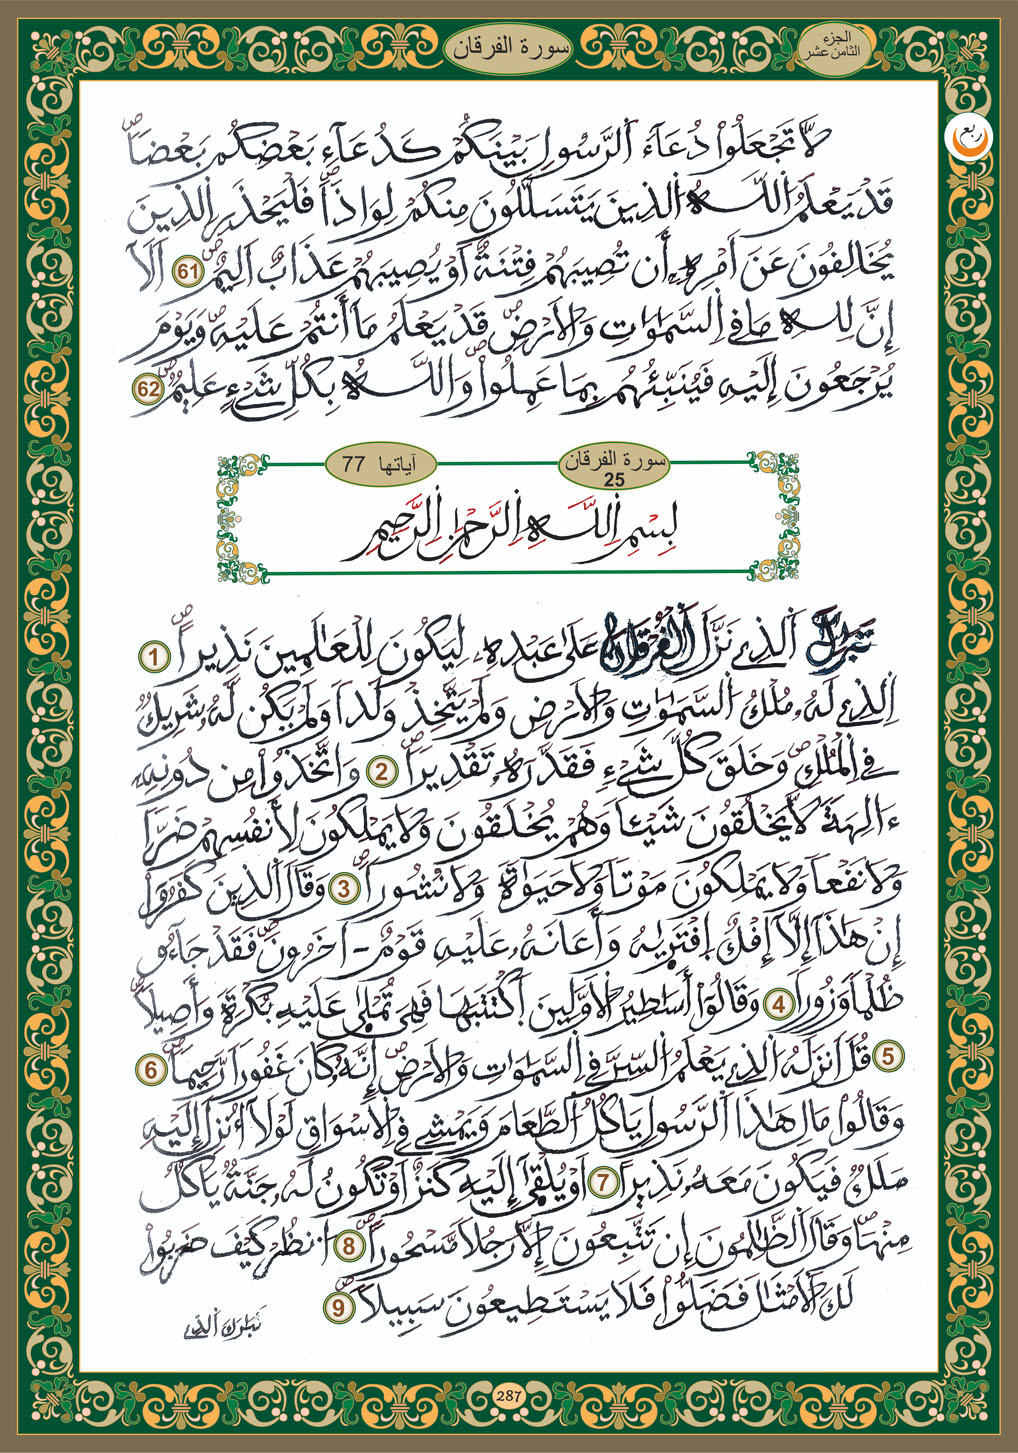 سورة الفرقان
الجزء
الثامن عشر
ربع
لَّا تَجْعَلُوا۟ دُعَآءَ اَ۬لرَّسُولِ بَيْنَكُمْ كَدُعَآءِ بَعْضِكُم بَعْضاٗۖ
قَدْ يَعْلَمُ اُ۬للَّهُ اُ۬لذِينَ يَتَسَلَّلُونَ مِنكُمْ لِوَاذاٗۖ فَلْيَحْذَرِ اِ۬لذِينَ
يُخَالِفُونَ عَنَ اَمْرِهِۦٓ أَن تُصِيبَهُمْ فِتْنَةٌ اَوْ يُصِيبَهُمْ عَذَابٌ اَلِيمٌۖ 61 اَلَآ
إِنَّ لِلهِ مَا فِے اِ۬لسَّمَٰوَٰتِ وَالَارْضِۖ قَدْ يَعْلَمُ مَآ أَنتُمْ عَلَيْهِۖ وَيَوْمَ
يُرْجَعُونَ إِلَيْهِ فَيُنَبِّئُهُم بِمَا عَمِلُوا۟ۖ وَاللَّهُ بِكُلِّ شَےْءٍ عَلِيمٌۖ 62
سورة الفرقان 25
آياتها 77
بِسْمِ اِ۬للَّهِ اِ۬لرَّحْمَٰنِ اِ۬لرَّحِيمِ
تَبَٰرَكَ اَ۬لذِے نَزَّلَ اَ۬لْفُرْقَانَ عَلَىٰ عَبْدِهِۦ لِيَكُونَ لِلْعَٰلَمِينَ نَذِيراًۖ 1
اِ۬لذِے لَهُۥ مُلْكُ اُ۬لسَّمَٰوَٰتِ وَالَارْضِ وَلَمْ يَتَّخِذْ وَلَداٗ وَلَمْ يَكُن لَّهُۥ شَرِيكٌ
فِے اِ۬لْمُلْكِۖ وَخَلَقَ كُلَّ شَےْءٍ فَقَدَّرَهُۥ تَقْدِيراٗۖ 2 وَاتَّخَذُوا۟ مِن دُونِهِۦٓ
ءَالِهَةٗ لَّا يَخْلُقُونَ شَيْـٔاٗ وَهُمْ يُخْلَقُونَ وَلَا يَمْلِكُونَ لِأَنفُسِهِمْ ضَرّاٗ
وَلَا نَفْعاٗ وَلَا يَمْلِكُونَ مَوْتاٗ وَلَا حَيَوٰةٗ وَلَا نُشُوراٗۖ 3 وَقَالَ اَ۬لذِينَ كَفَرُوٓا۟
إِنْ هَٰذَآ إِلَّآ إِفْكٌ اِ۪فْتَر۪يٰهُ وَأَعَانَهُۥ عَلَيْهِ قَوْمٌ ـ اٰخَرُونَۖ فَقَدْ جَآءُو
ظُلْماٗ وَزُوراٗۖ 4 وَقَالُوٓا۟ أَسَٰطِيرُ اُ۬لَاوَّلِينَ اَ۪كْتَتَبَهَا فَهِيَ تُمْل۪يٰ عَلَيْهِ بُكْرَةٗ وَأَصِيلاٗۖ
5 قُلَ اَنزَلَهُ اُ۬لذِے يَعْلَمُ اُ۬لسِّرَّ فِے اِ۬لسَّمَٰوَٰتِ وَالَارْضِۖ إِنَّهُۥ كَانَ غَفُوراٗ رَّحِيماٗۖ 6
وَقَالُوا۟ مَالِ هَٰذَا اَ۬لرَّسُولِ يَاكُلُ اُ۬لطَّعَامَ وَيَمْشِے فِے اِ۬لَاسْوَاقِ لَوْلَآ أُنزِلَ إِلَيْهِ
مَلَكٌ فَيَكُونَ مَعَهُۥ نَذِيراٗ 7 اَوْ يُلْق۪يٰٓ إِلَيْهِ كَنزٌ اَوْ تَكُونُ لَهُۥ جَنَّةٌ يَاكُلُ
مِنْهَاۖ وَقَالَ اَ۬لظَّٰلِمُونَ إِن تَتَّبِعُونَ إِلَّا رَجُلاٗ مَّسْحُوراٗۖ 8 اَ۟نظُرْ كَيْفَ ضَرَبُوا۟
لَكَ اَ۬لَامْثَٰلَ فَضَلُّوا۟ فَلَا يَسْتَطِيعُونَ سَبِيلاٗۖ 9
تَبَٰرَكَ اَ۬لذِے
287